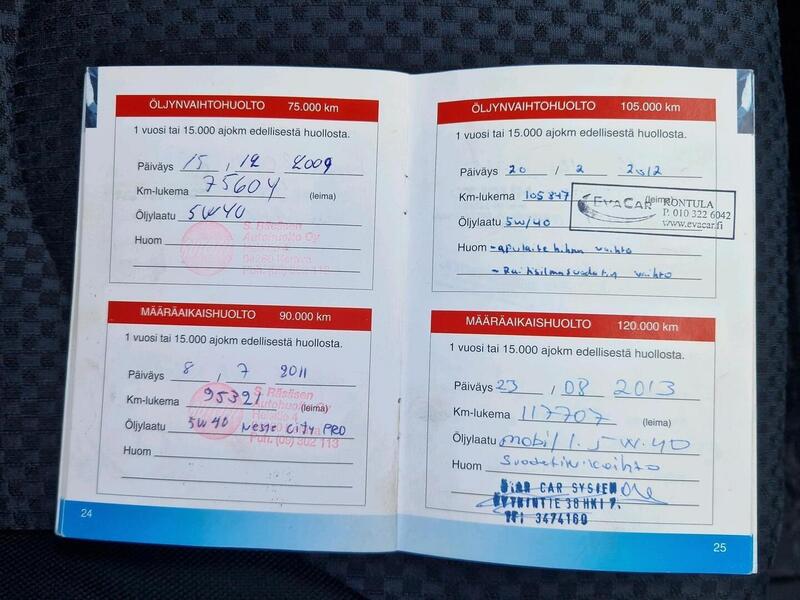 ÖLJYNVAIHTOHUOLTO 75.000 km
1 vuosi tai 15.000 ajokm edellisestä huollosta.
Päiväys 15 / 12 2009
Km-lukema 75604 (leima)
Öljylaatu 5W40
S. Räsäsen
Autohuolto Oy
Huom
MÄÄRÄAIKAISHUOLTO 90.000 km
1 vuosi tai 15.000 ajokm edellisestä huollosta.
Päiväys 8 / 7 2011
S. Räsäsen
Km-lukema 95321 (leima)
Autohuolto Oy
Öljylaatu 5W40 Neste City PRO
Puh. (09) 302 113
Huom
24
ÖLJYNVAIHTOHUOLTO 105.000 km
1 vuosi tai 15.000 ajokm edellisestä huollosta.
Päiväys 20 / 2 2012
Km-lukema 105847 (leima)
EVACAR KONTULA
P. 010 322 6042
www.evacar.fi
Öljylaatu 5W/40
Huom - apulaite hihnan vaihto
- Raitisilmasuodatin vaihto
MÄÄRÄAIKAISHUOLTO 120.000 km
1 vuosi tai 15.000 ajokm edellisestä huollosta.
Päiväys 23 / 08 2013
Km-lukema 117707 (leima)
Öljylaatu mobil 1. 5W.40
Huom Suodatin vaihto
CAR SYSTEM
38 HKI
3474160
25